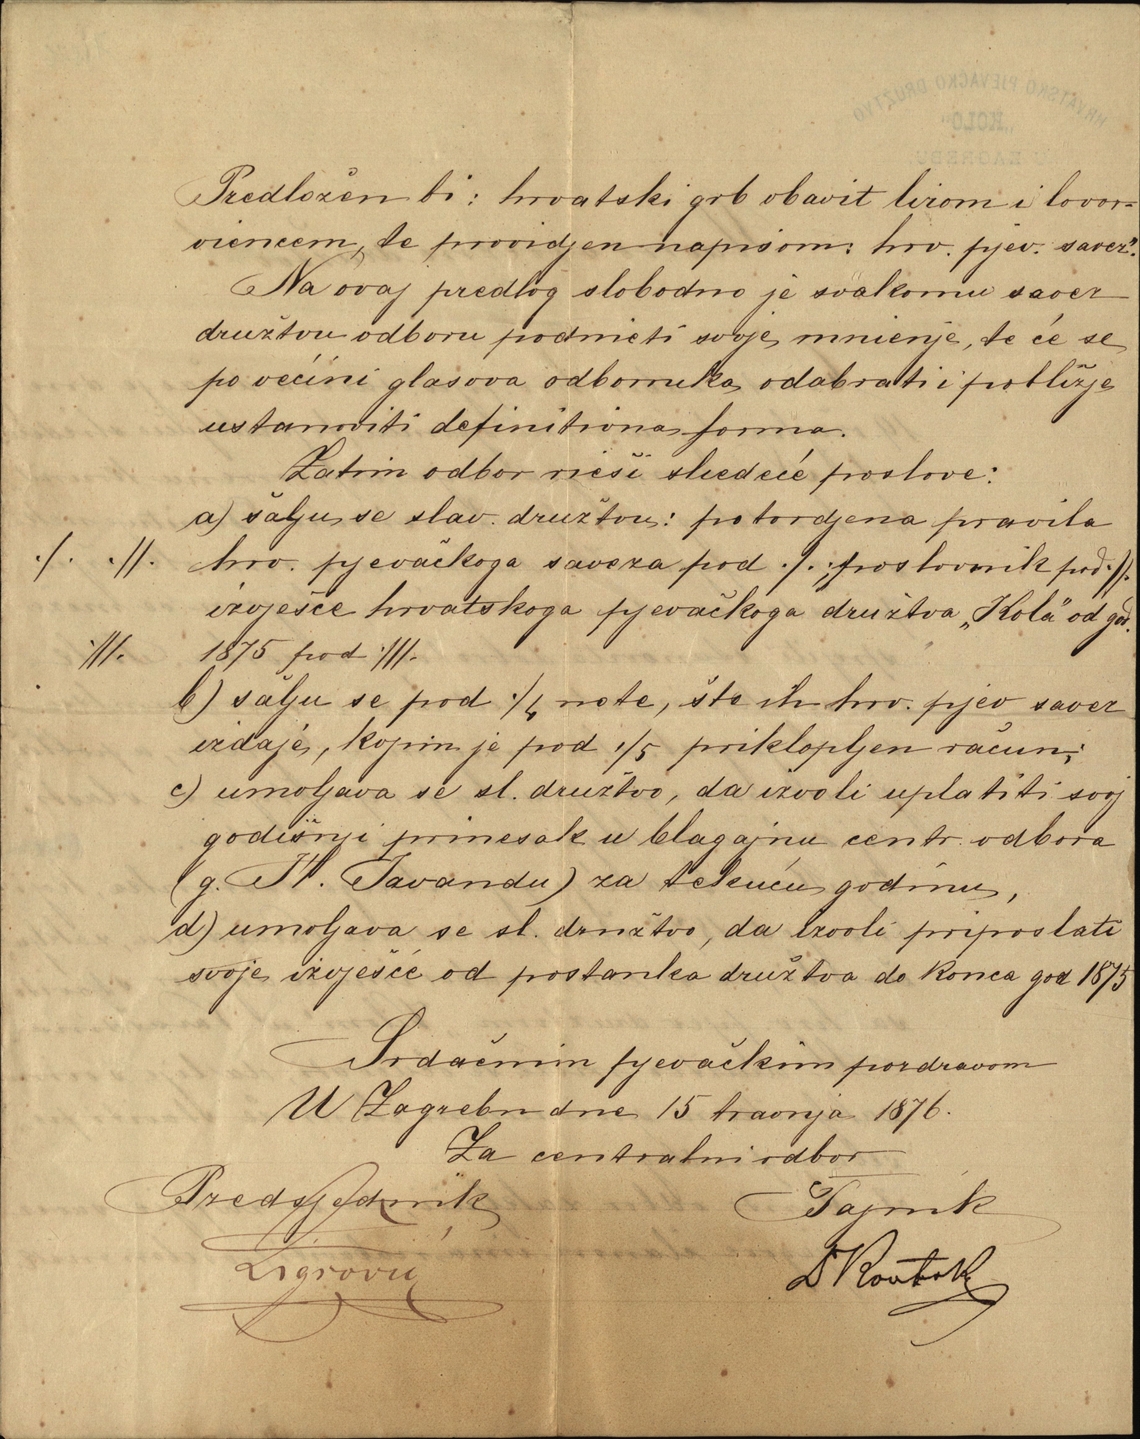 Predložen bi: hrvatski grb obavit lirom i lovor-
viencem, te providjen napisom: hrv. pjev. savez".
Na ovaj predlog slobodno je svakomu savez
družtvu odboru podnieti svoje mnienje, te će se
po većini glasova odbornika odabrati i pobližje
ustanoviti definitivna forma.
Zatim odbor rieši sliedeće poslove:
a) šalju se slav. družtvu: potvrdjena pravila
./. .//. hrv. pjevačkoga saveza pod ./. ; poslovnik pod .//.
izvješće hrvatskoga pjevačkoga družtva „Kola" od god.
.///. 1875 pod .///.
b) šalju se pod ./4 note, što ih hrv. pjev savez
izdaje, kojim je pod ./5 priklopljen račun;
c) umoljava se sl. družtvo, da izvoli uplatiti svoj
godišnji prinesak u blagajnu centr. odbora
(g. ) za tekuću godinu,
d) umoljava se sl. družtvo, da izvoli priposlati
svoje izvješće od postanka družtva do konca god 1875
Srdačnim pjevačkim pozdravom
U Zagrebu dne 15 travnja 1876.
Za centralni odbor
Predsjednik Tajnik
Zigrović
HRVATSKO PJEVAČKO DRUŽTVO
„KOLO"
U ZAGREBU